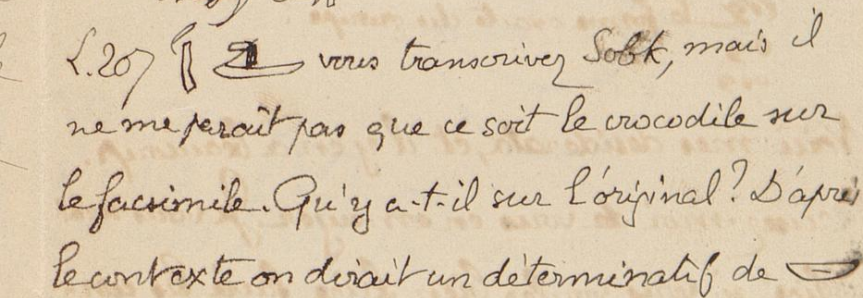 L.207 vous transcrivez Sobk, mais il
ne me paraît pas que ce soit le crocodile sur
le facsimile. Qu'y a-t-il sur l'original? D'après
le contexte on dirait un déterminatif de